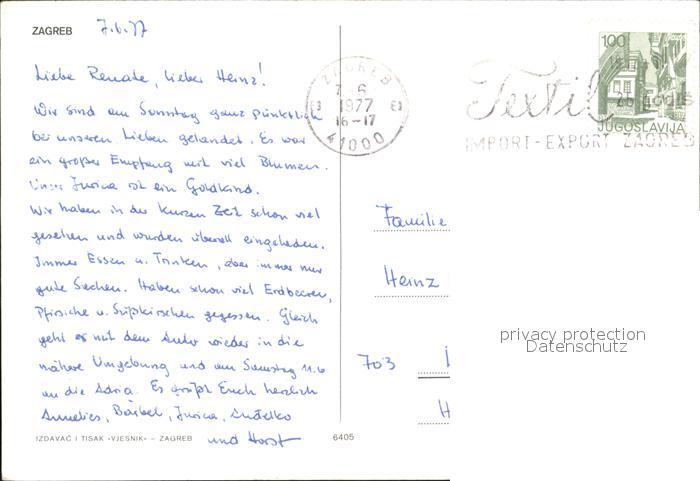 ZAGREB 7.6.77
Liebe Renate, lieber Heinz!
Wir sind am Sonntag ganz pünktlich
bei unseren Lieben gelandet. Es war
ein großer Empfang mit viel Blumen.
Unser Jurica ist ein Goldkind.
Wir haben in der kurzen Zeit schon viel
gesehen und wurden überall eingeladen.
Immer Essen u. Trinken, aber immer nur
gute Sachen. Haben schon viel Erdbeeren,
Pfirsiche u. Süßkirschen gegessen. Gleich
geht es mit dem Auto wieder in die
nähere Umgebung und am Samstag 11.6
an die Adria. Es grüßt Euch herzlich
Annelies, Bärbel, Jurica, Anđelko
und Horst
IZDAVAČ I TISAK «VJESNIK» – ZAGREB
6405
ZAGREB
7-6
1977
16-17
41000
Textil
IMPORT-EXPORT ZAGREB
100
JUGOSLAVIJA
Familie
Heinz
703
privacy protection
Datenschutz